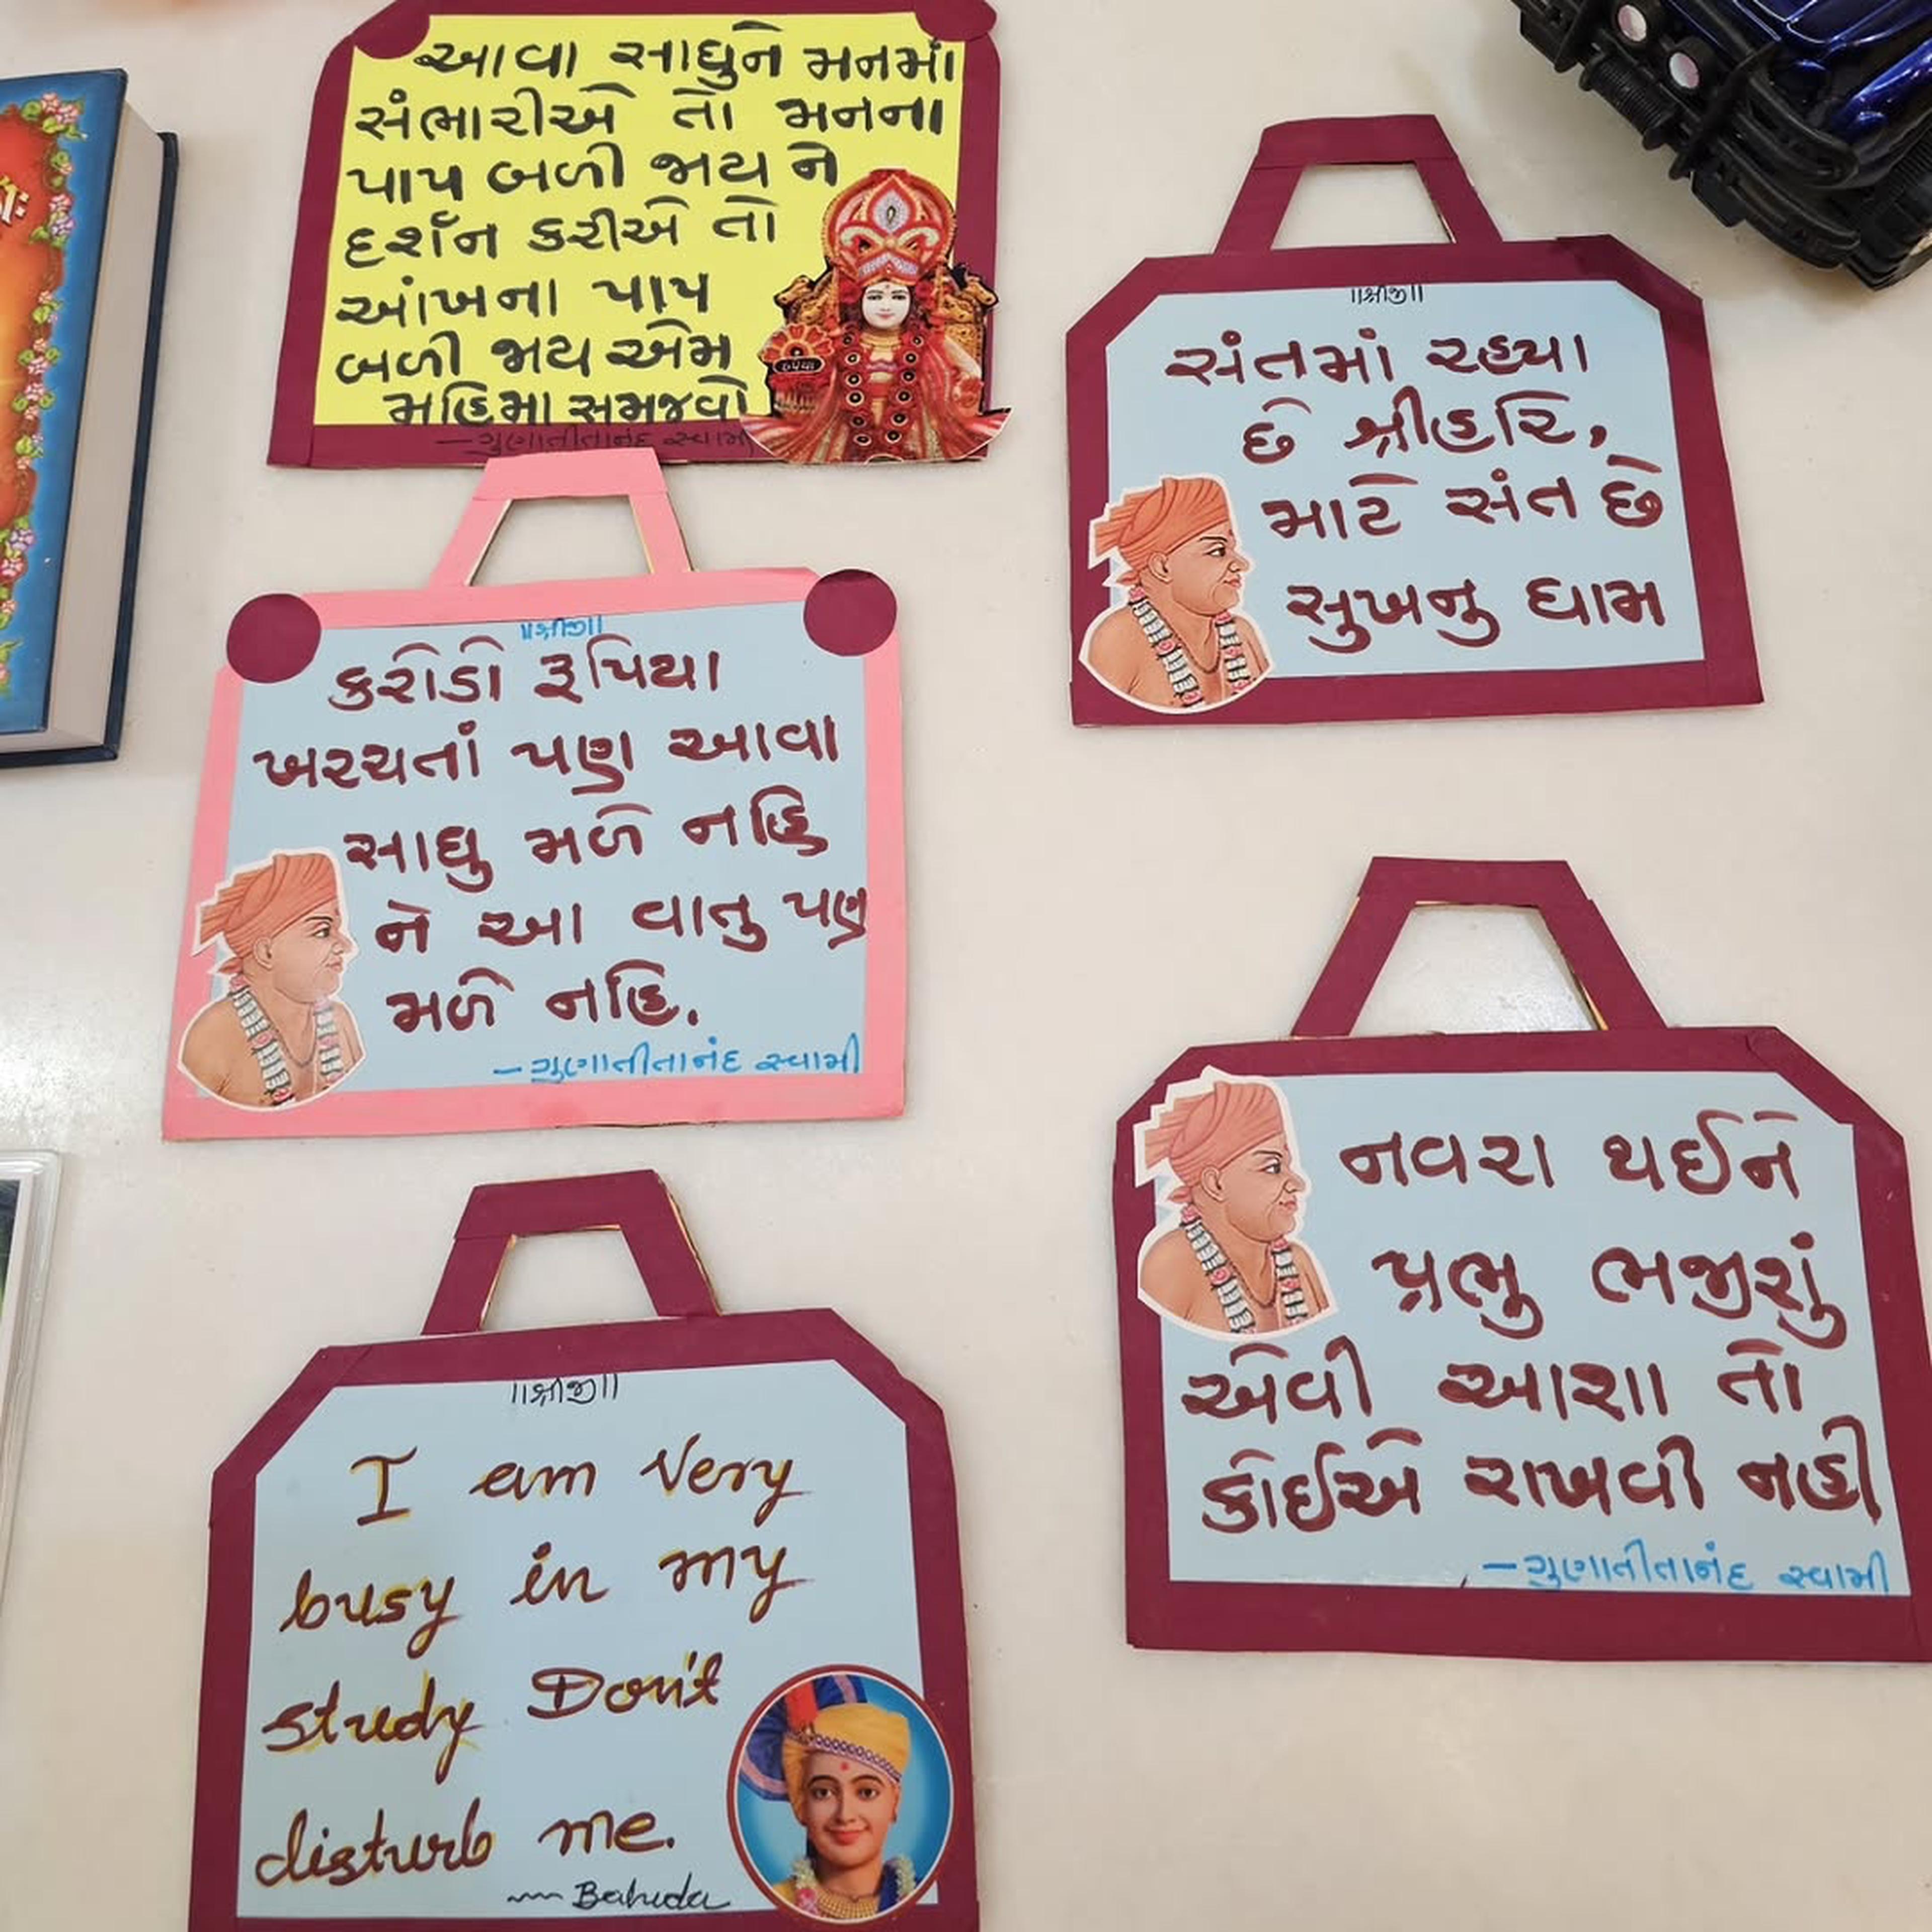 આવા સાધુને મનમાં
સંભારીએ તો મનના
પાપ બળી જાય ને
દર્શન કરીએ તો
આંખના પાપ
બળી જાય એમ
મહિમા સમજવો
- ગુણાતીતાનંદ સ્વામી
॥શ્રીજી॥
સંતમાં રહ્યા
છે શ્રીહરિ,
માટે સંત છે
સુખનુ ધામ
॥શ્રીજી॥
કરોડો રૂપિયા
ખરચતાં પણ આવા
સાધુ મળે નહિ
ને આ વાતુ પણ
મળે નહિ.
- ગુણાતીતાનંદ સ્વામી
નવરા થઈને
પ્રભુ ભજીશું
એવી આશા તો
કોઈએ રાખવી નહી
- ગુણાતીતાનંદ સ્વામી
॥શ્રીજી॥
I am Very
busy in my
study Don't
disturb me.